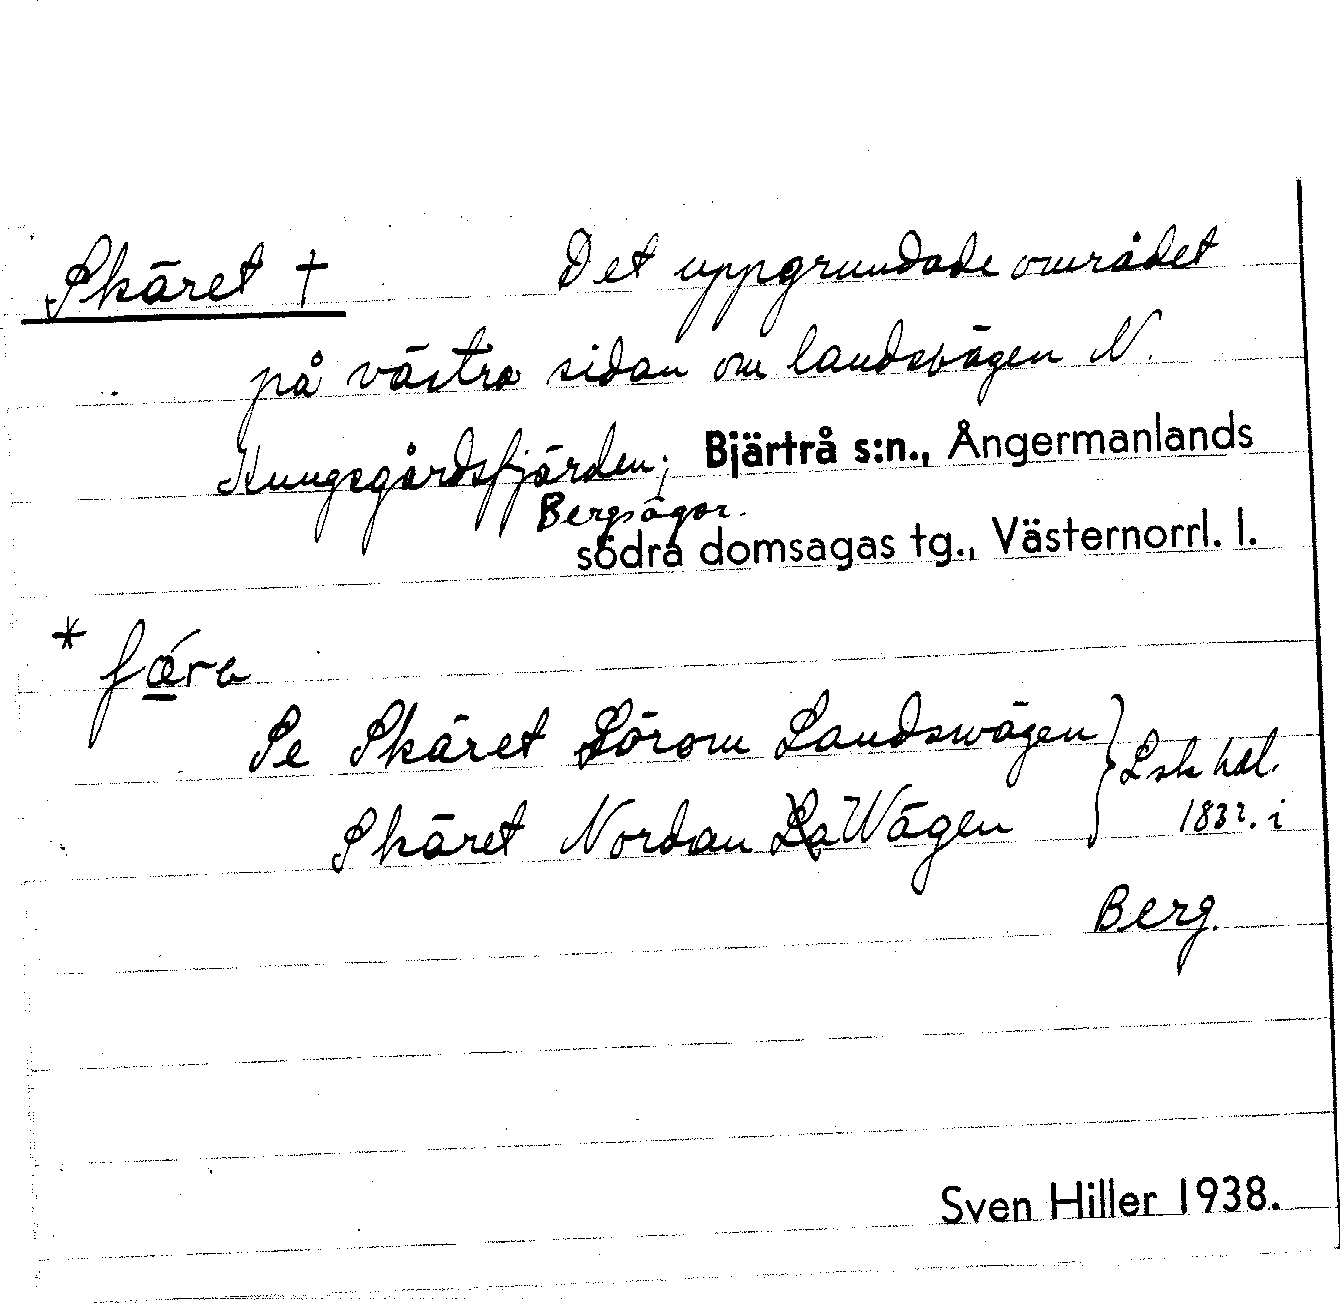 Skäret †
Det uppgrundade området
på västra sidan om landsvägen N.
Kungsgårdsfjärden; Bjärtrå s:n., Ångermanlands
Bergsägor.
södra domsagas tg., Västernorrl. l.
*
Se Skäret Sörom Landswägen
Skäret Nordan La Wägen
Lsk hdl.
1832. i
Berg.
Sven Hiller 1938.